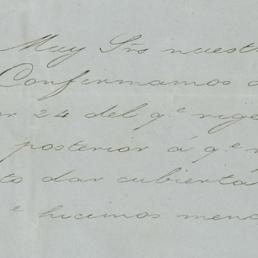 Muy Sṙs nuestr
Confirmamos
24 del qᵉ rige
posterior á qᵉ
dar cubierta
e hicimos men